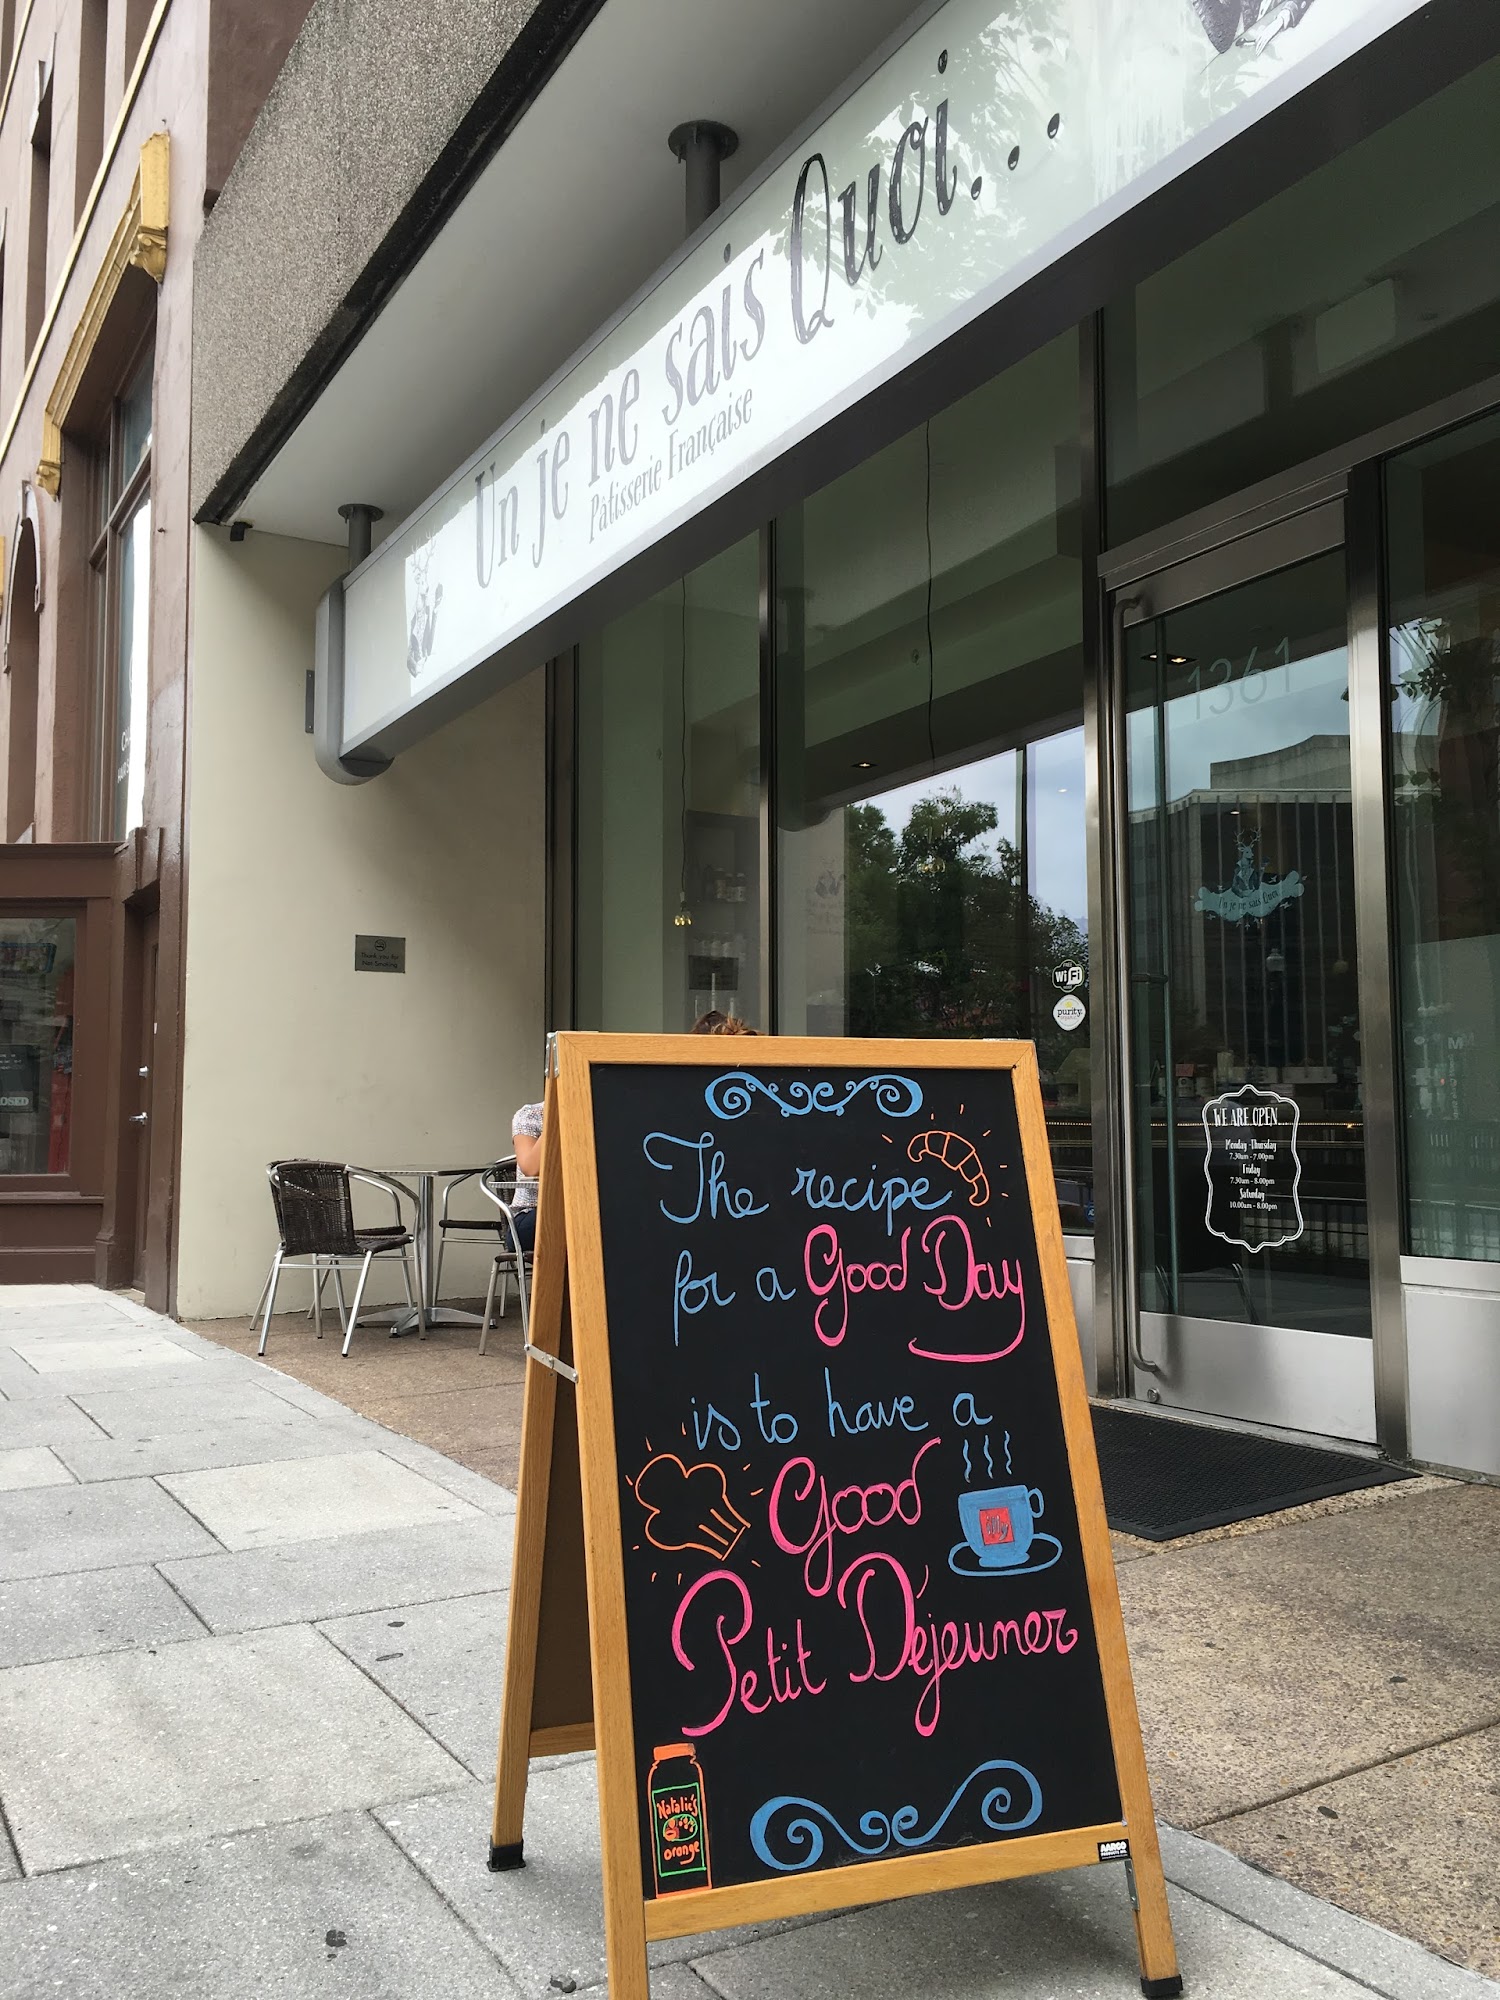 Un je ne sais Quoi...
Pâtisserie Française
1361
Un je ne sais Quoi
Thank you for
Not Smoking
WiFi
purity.
WE ARE OPEN...
Monday - Thursday
7.30am - 7.00pm
Friday
7.30am - 8.00pm
Saturday
10.00am - 8.00pm
The recipe
for a Good Day
is to have a
Good
illy
Petit Déjeuner
Natalie's
orange
AARCO